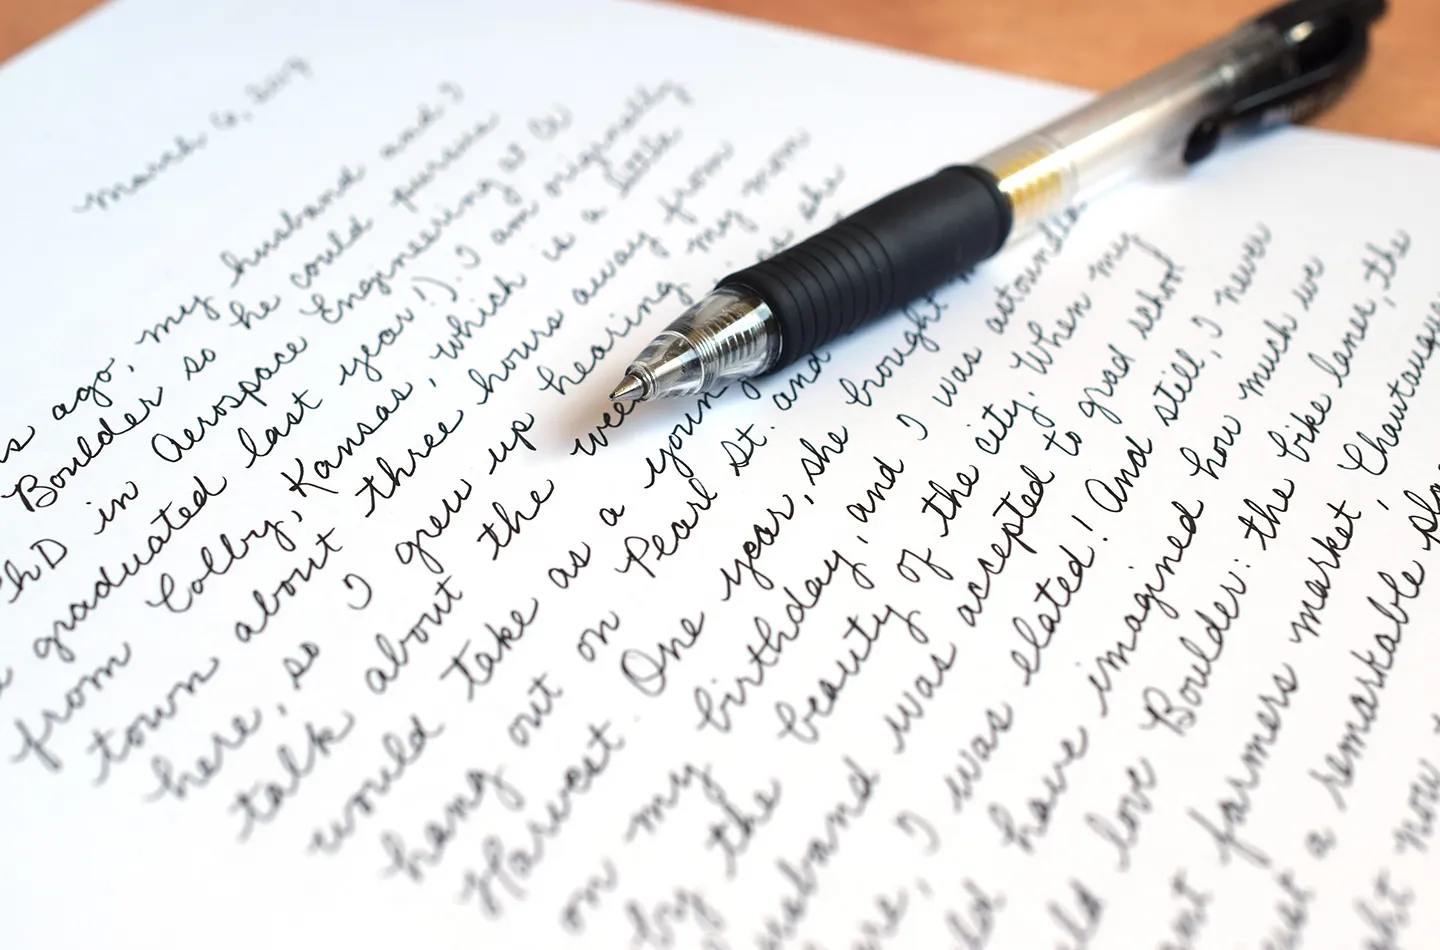 March 6, 2017
s ago, my husband and I
Boulder so he could pursue
PhD in Aerospace Engineering at CU
graduated last year!). I am originally
from Colby, Kansas, which is a little
town about three hours away from
here, so I grew up hearing my mom
talk about the she
would take as a young
hang out on Pearl St. and
Harvest One year, she brought
on my birthday, and I was astounded
by the beauty of the city. When my
husband was accepted to grad school
I was elated! And still, I never
have imagined how much we
love Boulder: the bike lanes, the
farmers market, Chautauqua
a remarkable
now